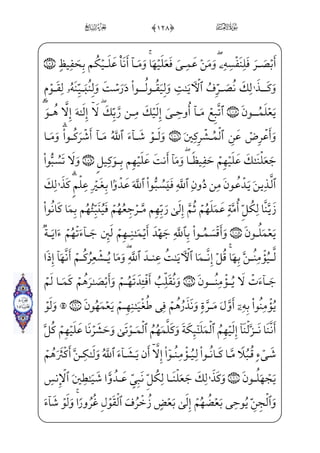 الجزء السابع ﴿١٢٨﴾ سورة الأنعام
أَبْصَرَ فَلِنَفْسِهِۦ ۖ وَمَنْ عَمِىَ فَعَلَيْهَا ۚ وَمَآ أَنَا۠ عَلَيْكُم بِحَفِيظٍ ﴿١٠٤﴾
وَكَذَٰلِكَ نُصَرِّفُ ٱلْـَٔايَـٰتِ وَلِيَقُولُوا۟ دَرَسْتَ وَلِنُبَيِّنَهُۥ لِقَوْمٍ
يَعْلَمُونَ ﴿١٠٥﴾ ٱتَّبِعْ مَآ أُوحِىَ إِلَيْكَ مِن رَّبِّكَ ۖ لَآ إِلَـٰهَ إِلَّا هُوَ ۖ
وَأَعْرِضْ عَنِ ٱلْمُشْرِكِينَ ﴿١٠٦﴾ وَلَوْ شَآءَ ٱللَّهُ مَآ أَشْرَكُوا۟ ۗ وَمَا
جَعَلْنَـٰكَ عَلَيْهِمْ حَفِيظًا ۖ وَمَآ أَنتَ عَلَيْهِم بِوَكِيلٍ ﴿١٠٧﴾ وَلَا تَسُبُّوا۟
ٱلَّذِينَ يَدْعُونَ مِن دُونِ ٱللَّهِ فَيَسُبُّوا۟ ٱللَّهَ عَدْوًۢا بِغَيْرِ عِلْمٍ ۗ كَذَٰلِكَ
زَيَّنَّا لِكُلِّ أُمَّةٍ عَمَلَهُمْ ثُمَّ إِلَىٰ رَبِّهِم مَّرْجِعُهُمْ فَيُنَبِّئُهُم بِمَا كَانُوا۟
يَعْمَلُونَ ﴿١٠٨﴾ وَأَقْسَمُوا۟ بِٱللَّهِ جَهْدَ أَيْمَـٰنِهِمْ لَئِن جَآءَتْهُمْ ءَايَةٌ
لَّيُؤْمِنُنَّ بِهَا ۚ قُلْ إِنَّمَا ٱلْـَٔايَـٰتُ عِندَ ٱللَّهِ ۖ وَمَا يُشْعِرُكُمْ أَنَّهَآ إِذَا
جَآءَتْ لَا يُؤْمِنُونَ ﴿١٠٩﴾ وَنُقَلِّبُ أَفْـِٔدَتَهُمْ وَأَبْصَـٰرَهُمْ كَمَا لَمْ
يُؤْمِنُوا۟ بِهِۦٓ أَوَّلَ مَرَّةٍ وَنَذَرُهُمْ فِى طُغْيَـٰنِهِمْ يَعْمَهُونَ ﴿١١٠﴾ ۞ وَلَوْ
أَنَّنَا نَزَّلْنَآ إِلَيْهِمُ ٱلْمَلَـٰٓئِكَةَ وَكَلَّمَهُمُ ٱلْمَوْتَىٰ وَحَشَرْنَا عَلَيْهِمْ كُلَّ
شَىْءٍ قُبُلًا مَّا كَانُوا۟ لِيُؤْمِنُوٓا۟ إِلَّآ أَن يَشَآءَ ٱللَّهُ وَلَـٰكِنَّ أَكْثَرَهُمْ
يَجْهَلُونَ ﴿١١١﴾ وَكَذَٰلِكَ جَعَلْنَا لِكُلِّ نَبِىٍّ عَدُوًّا شَيَـٰطِينَ ٱلْإِنسِ
وَٱلْجِنِّ يُوحِى بَعْضُهُمْ إِلَىٰ بَعْضٍ زُخْرُفَ ٱلْقَوْلِ غُرُورًا ۚ وَلَوْ شَآءَ